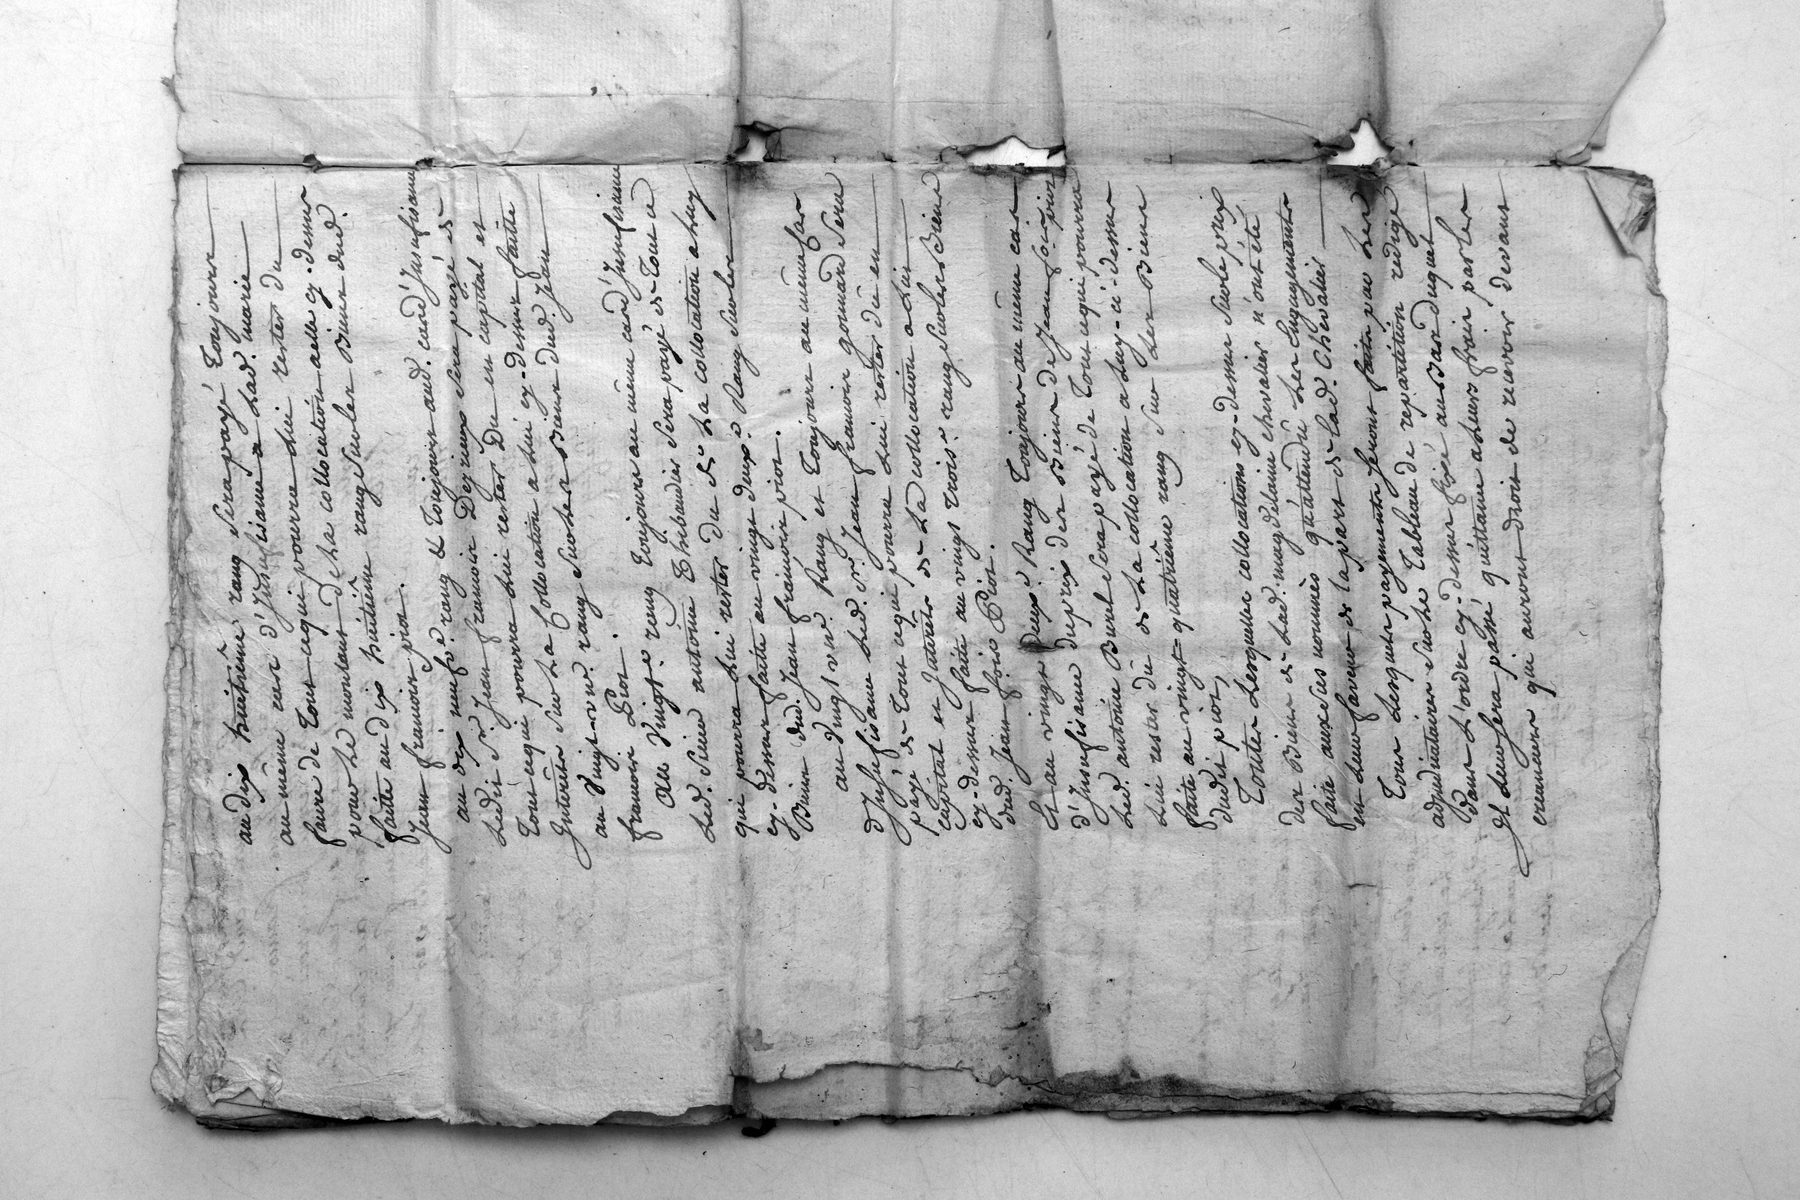 au dix huitième rang sera payé Toujours
au même cas d'Insufisance Lad. marie
faure de Tout ce qui pourra Lui rester du
pour Le montant de La collocation a elle cy-dessus
faite au dix huitième rang sur les Biens dud.
Jean françois pior.
au dix neufe. rang & Toujours aud. cas d'Insufisance
Ledit Sr. Jean françois Dezrieux sera payé de
Tout ce qui pourra Lui rester Du en capital et
Interets sur La Collocation a Lui cy-dessus faite
au Vingt-un rang sur les Biens dud. Jean
françois Pior.
Au Vingte. rang Toujours au même cas d'Insufisance
Led. Sieur antoine Thibaudier sera payé de Tout ce
qui pourra Lui rester du de La collocation a Luy
cy-dessus faitte au vingt deuxe. Rang sur les
Biens dud. Jean françois pior.
au Vingt un e. Rang et Toujours au même cas
d'Insufisance Led. Sr. Jean françois gonnard sera
payé de Tout ce qui pourra Lui rester dû en
Capital et Interets de La collocation a Lui
cy-dessus faite au vingt trois e. rang sur les Biens
dud. Jean fois Pior.
Et au vingt Deux e. Rang Toujours au même cas
d'Insufisance du prix des Biens de Jean fois pior
Led. antoine Burel sera payé de Tout ce qui pourra
Lui rester dû de La collocation a Luy-ci-dessus
faite au vingt-quatrième rang sur Les Biens
dudit pior,
Toutes Lesquelles collocations cy-dessus sur le prix
des Biens de Lad. magdelaine chevalier n'ont été
faite aux sus nommés qu'attendu Les Engagements
en Leur faveur de la part de lad. Chevalier
Tous Lesquels payements seront faits par Les
adjudicataires sur Le Tableau de repartition redigé
dans L'ordre cy-dessus fixé au Bas duquel
Il Leur sera passé quittance a Leurs frais par les
creanciers qui auront droit de recevoir devant